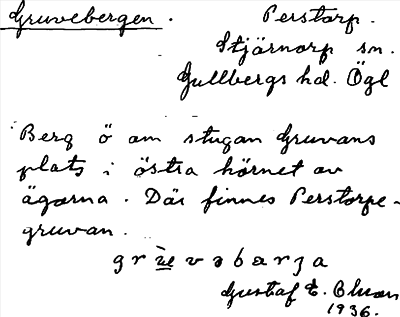 Gruvebergen. Perstorp.
Stjärnorp sn.
Gullbergs hd. Ögl
Berg ö om stugan Gruvans
plats i östra hörnet av
ägorna. Där finnes Perstorpe-
gruvan.
Gustaf E.
1936.